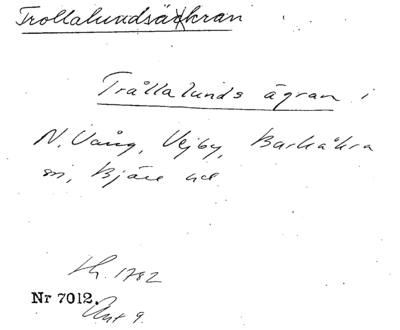 Trollalundsäckran
Trållalunds ägran i
N. Vång, Vejby, Barkåkra
sn, Bjäre hd.
Lh. 1782
Nr 7012. Akt 9.